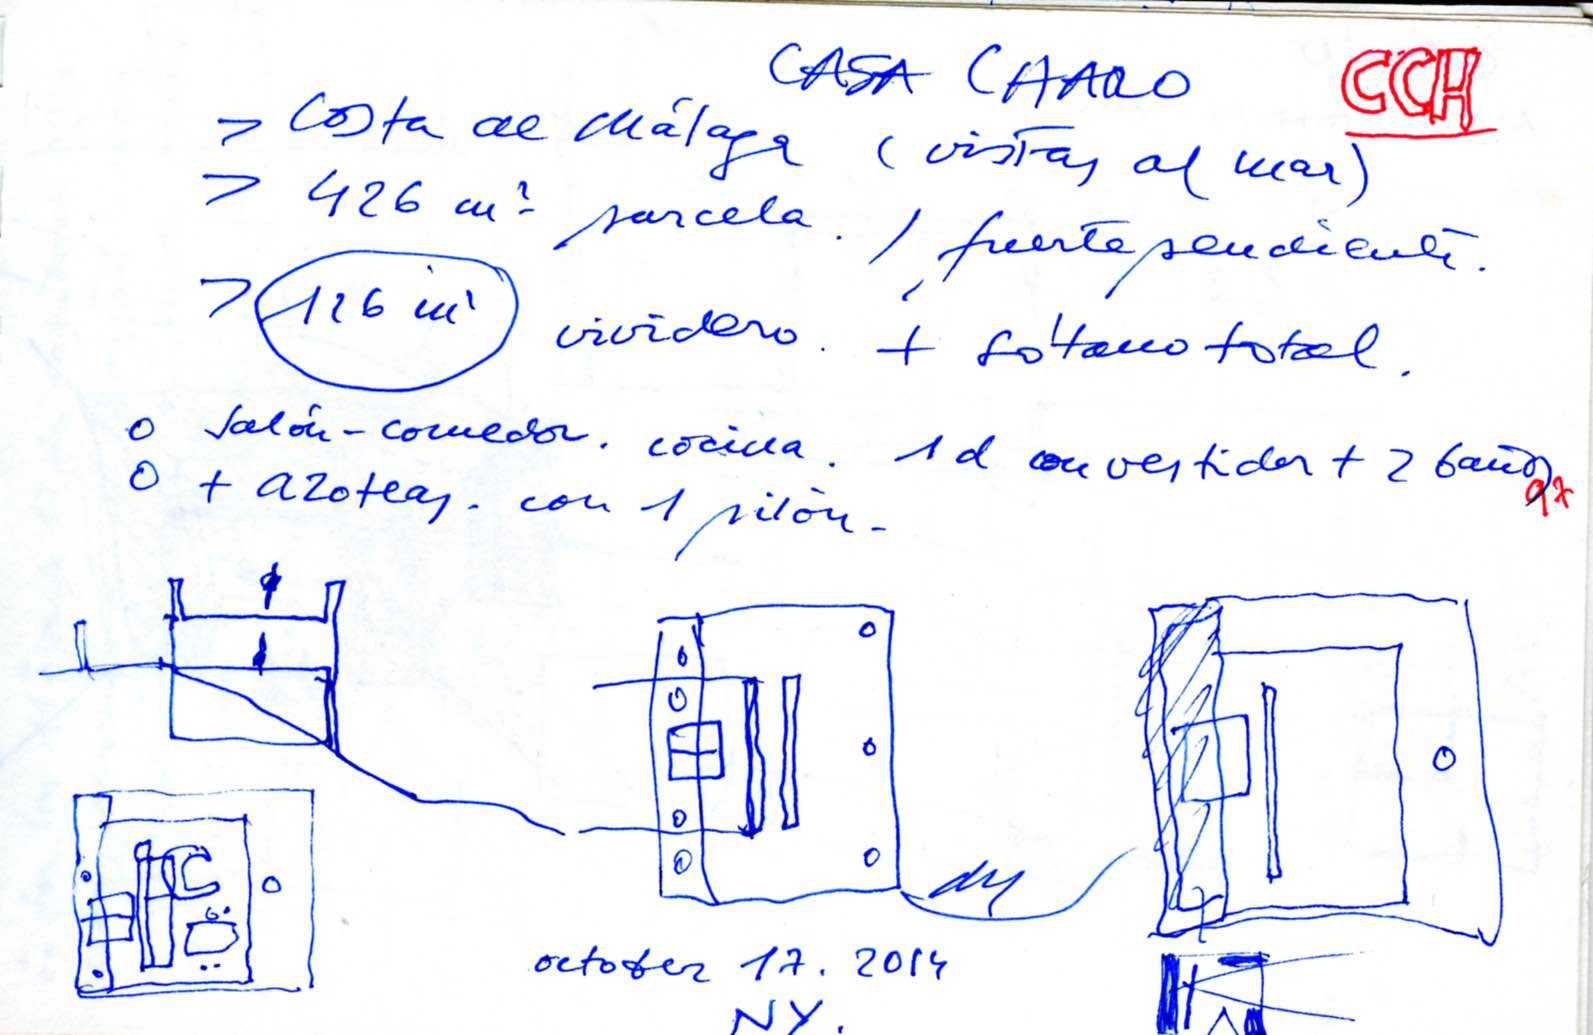 CASA CHARO
CCH
> Costa de Málaga (vistas al mar)
> 426 m² parcela. / fuerte pendiente.
> 126 m² vividero. + sótano total.
o salón-comedor. cocina. 1 d con vestidor + 2 baños
o + azoteas. con 1 pilón-
october 17. 2014
NY.